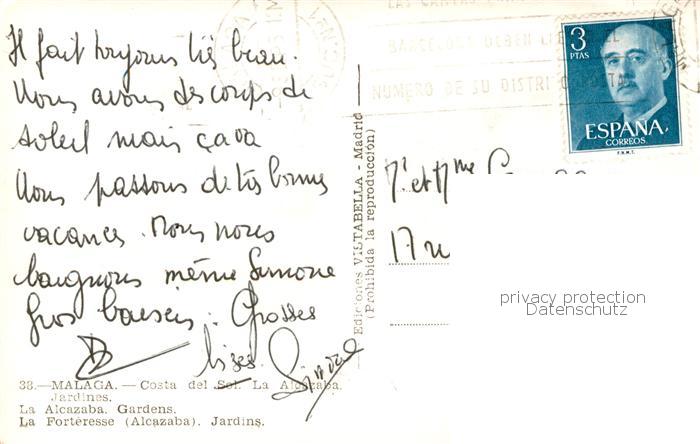 Il fait toujours très beau.
Nous avons des coups de
soleil mais ça va
Nous passons de très bonnes
vacances. Nous nous
baignons même Simone
Gros baisers. Grosses
bises. Simone
38.—MALAGA.—Costa del Sol. La Alcazaba.
Jardines.
La Alcazaba. Gardens.
La Forteresse (Alcazaba). Jardins.
Ediciones VISTABELLA - Madrid
(Prohibida la reproducción)
BARCELONA DEBEN LLEVAR EL
NUMERO DE SU DISTRITO POSTAL
3
PTAS
ESPAÑA
CORREOS
F.N.M.T.
Mr et Mme
17
privacy protection
Datenschutz